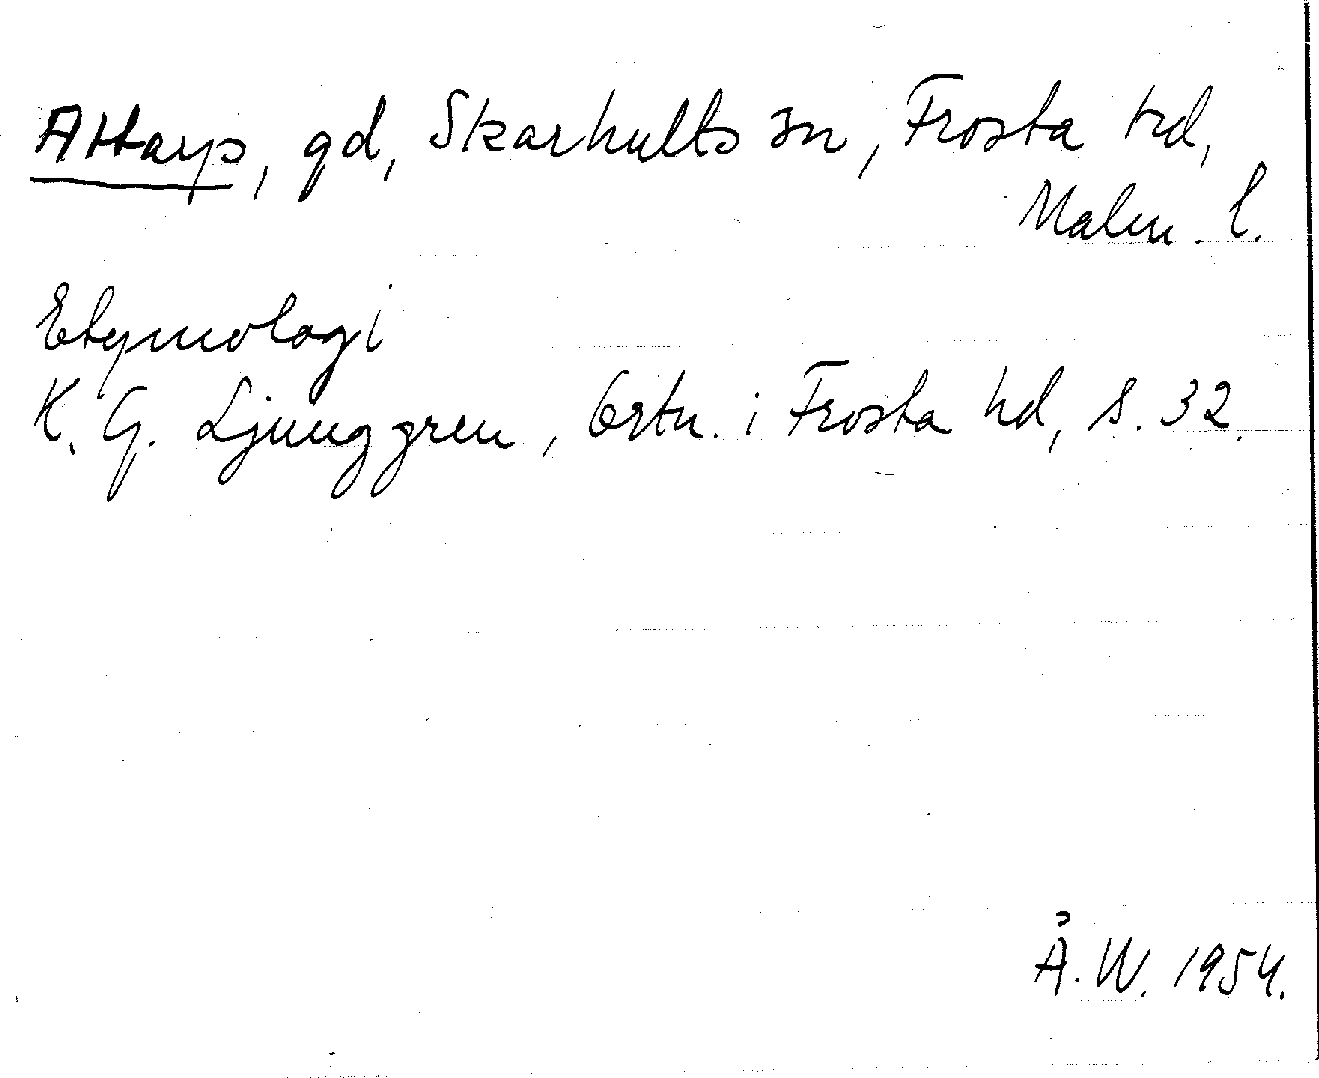 Attarp, gd, Skarhults sn, Frosta hd,
Malm. l.
Etymologi
K. G. Ljunggren, Ortn. i Frosta hd, s. 32.
Å. W. 1954.